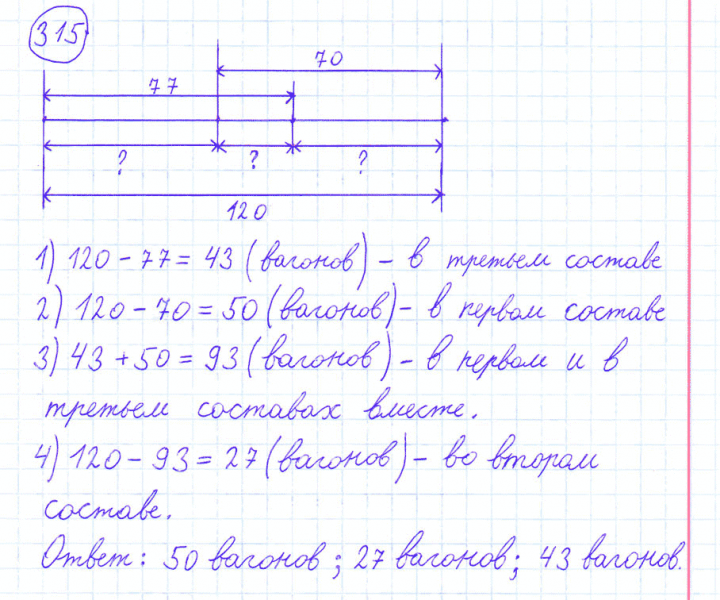 315
70
77
? ? ?
120
1) 120 - 77 = 43 (вагонов) - в третьем составе
2) 120 - 70 = 50 (вагонов) - в первом составе
3) 43 + 50 = 93 (вагонов) - в первом и в
третьем составах вместе.
4) 120 - 93 = 27 (вагонов) - во втором
составе.
Ответ: 50 вагонов; 27 вагонов; 43 вагонов.